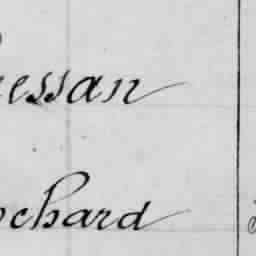 essan
ochard